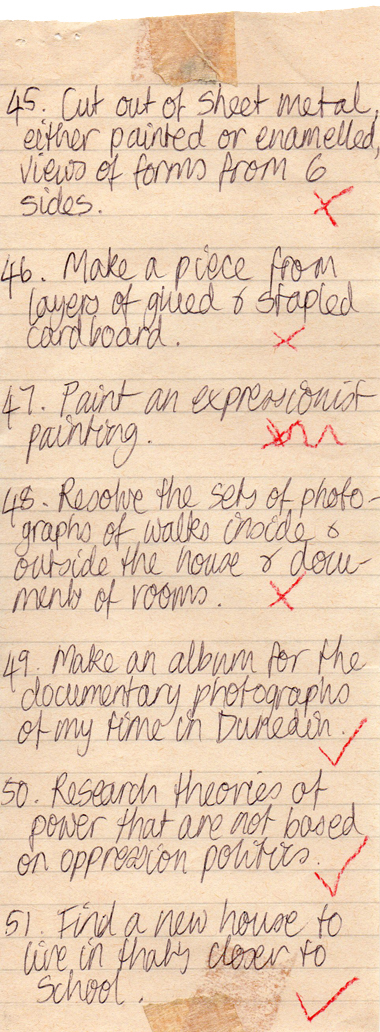 45. Cut out of sheet metal,
either painted or enamelled,
views of forms from 6
sides.
46. Make a piece from
layers of glued & stapled
cardboard.
47. Paint an expressionist
painting.
48. Resolve the sets of photo-
graphs of walks inside &
outside the house & docu-
ments of rooms.
49. Make an album for the
documentary photographs
of my time in Dunedin.
50. Research theories of
power that are not based
on oppression politics.
51. Find a new house to
live in thats closer to
School.